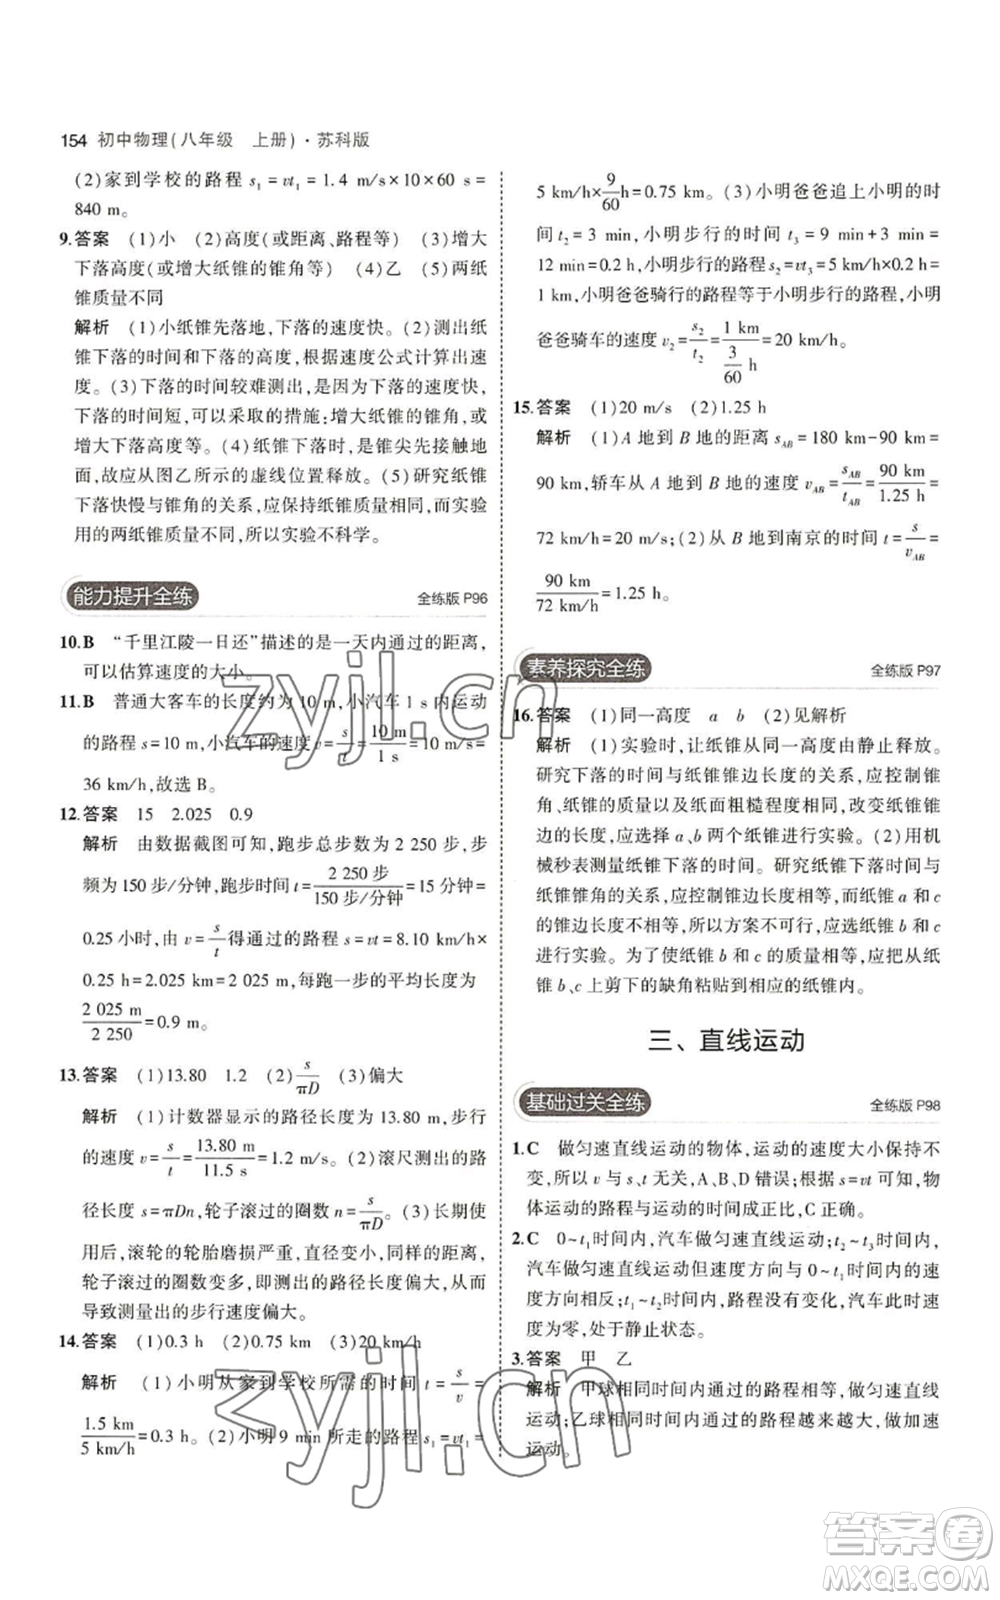 154 初中物理(八年级 上册)·苏科版
(2)家到学校的路程 s₁ = vt₁ = 1.4 m/s×10×60 s =
840 m。
9.答案 (1)小 (2)高度(或距离、路程等) (3)增大
下落高度(或增大纸锥的锥角等) (4)乙 (5)两纸
锥质量不同
解析 (1)小纸锥先落地,下落的速度快。(2)测出纸
锥下落的时间和下落的高度,根据速度公式计算出速
度。(3)下落的时间较难测出,是因为下落的速度快、
下落的时间短,可以采取的措施:增大纸锥的锥角,或
增大下落高度等。(4)纸锥下落时,是锥尖先接触地
面,故应从图乙所示的虚线位置释放。(5)研究纸锥
下落快慢与锥角的关系,应保持纸锥的质量相同,实验
用的两纸锥质量不同,所以实验不科学。
能力提升全练 全练版 P96
10.B “千里江陵一日还”描述的是一天内通过的距离,
可以估算速度的大小。
11.B 普通大客车的长度约为 10 m,小汽车 1 s 内运动
的路程 s = 10 m,小汽车的速度 v = s/t = 10 m/1 s = 10 m/s =
36 km/h,故选 B。
12.答案 15 2.025 0.9
解析 由数据截图可知,跑步总步数为 2 250 步,步
频为 150 步/分钟,跑步时间 t = 2 250 步/150 步/分钟 = 15 分钟 =
0.25 小时,由 v = s/t 得通过的路程 s = vt = 8.10 km/h×
0.25 h = 2.025 km = 2 025 m,每跑一步的平均长度为
2 025 m/2 250 = 0.9 m。
13.答案 (1)13.80 1.2 (2)s/πD (3)偏大
解析 (1)计数器显示的路径长度为 13.80 m,步行
的速度 v = s/t = 13.80 m/11.5 s = 1.2 m/s。(2)滚尺测出的路
径长度 s = πDn,轮子滚过的圈数 n = s/πD。(3)长期使
用后,滚轮的轮胎磨损严重,直径变小,同样的距离,
轮子滚过的圈数变多,即测出的路径长度偏大,从而
导致测量出的步行速度偏大。
14.答案 (1)0.3 h (2)0.75 km (3)20 km/h
解析 (1)小明从家到学校所需的时间 t = s/v =
1.5 km/5 km/h = 0.3 h。(2)小明 9 min 所走的路程 s₁ = vt₁ =
5 km/h×9/60 h = 0.75 km。(3)小明爸爸追上小明的时
间 t₂ = 3 min,小明步行的时间 t₃ = 9 min + 3 min =
12 min = 0.2 h,小明步行的路程 s₂ = vt₃ = 5 km/h×0.2 h =
1 km,小明爸爸骑行的路程等于小明步行的路程,小明
爸爸骑车的速度 v₂ = s₂/t₂ = 1 km/(3/60 h) = 20 km/h。
15.答案 (1)20 m/s (2)1.25 h
解析 (1)A 地到 B 地的距离 s_AB = 180 km-90 km =
90 km,轿车从 A 地到 B 地的速度 v_AB = s_AB/t_AB = 90 km/1.25 h =
72 km/h = 20 m/s;(2)从 B 地到南京的时间 t = s/v_AB =
90 km/72 km/h = 1.25 h。
素养探究全练 全练版 P97
16.答案 (1)同一高度 a b (2)见解析
解析 (1)实验时,让纸锥从同一高度由静止释放。
研究下落的时间与纸锥锥边长度的关系,应控制锥
角、纸锥的质量以及纸面粗糙程度相同,改变纸锥锥
边的长度,应选择 a、b 两个纸锥进行实验。(2)用机
械秒表测量纸锥下落的时间。研究纸锥下落时间与
纸锥锥角的关系,应控制锥边长度相等,而纸锥 a 和 c
的锥边长度不相等,所以方案不可行,应选纸锥 b 和 c
进行实验。为了使纸锥 b 和 c 的质量相等,应把从纸
锥 b、c 上剪下的缺角粘贴到相应的纸锥内。
三、直线运动
基础过关全练 全练版 P98
1.C 做匀速直线运动的物体,运动的速度大小保持不
变,所以 v 与 s、t 无关,A、B、D 错误;根据 s = vt 可知,物
体运动的路程与运动的时间成正比,C 正确。
2.C 0~t₁时间内,汽车做匀速直线运动;t₂~t₃时间内,
汽车做匀速直线运动但速度方向与 0~t₁时间内运动
方向相反;t₁~t₂时间内,路程没有变化,汽车此时速
度为零,处于静止状态。
3.答案 甲 乙
解析 甲球相同时间内通过的路程相等,做匀速直线
运动;乙球相同时间内通过的路程越来越大,做加速
运动。
zyjl.cn
zyjl.cn
答案卷